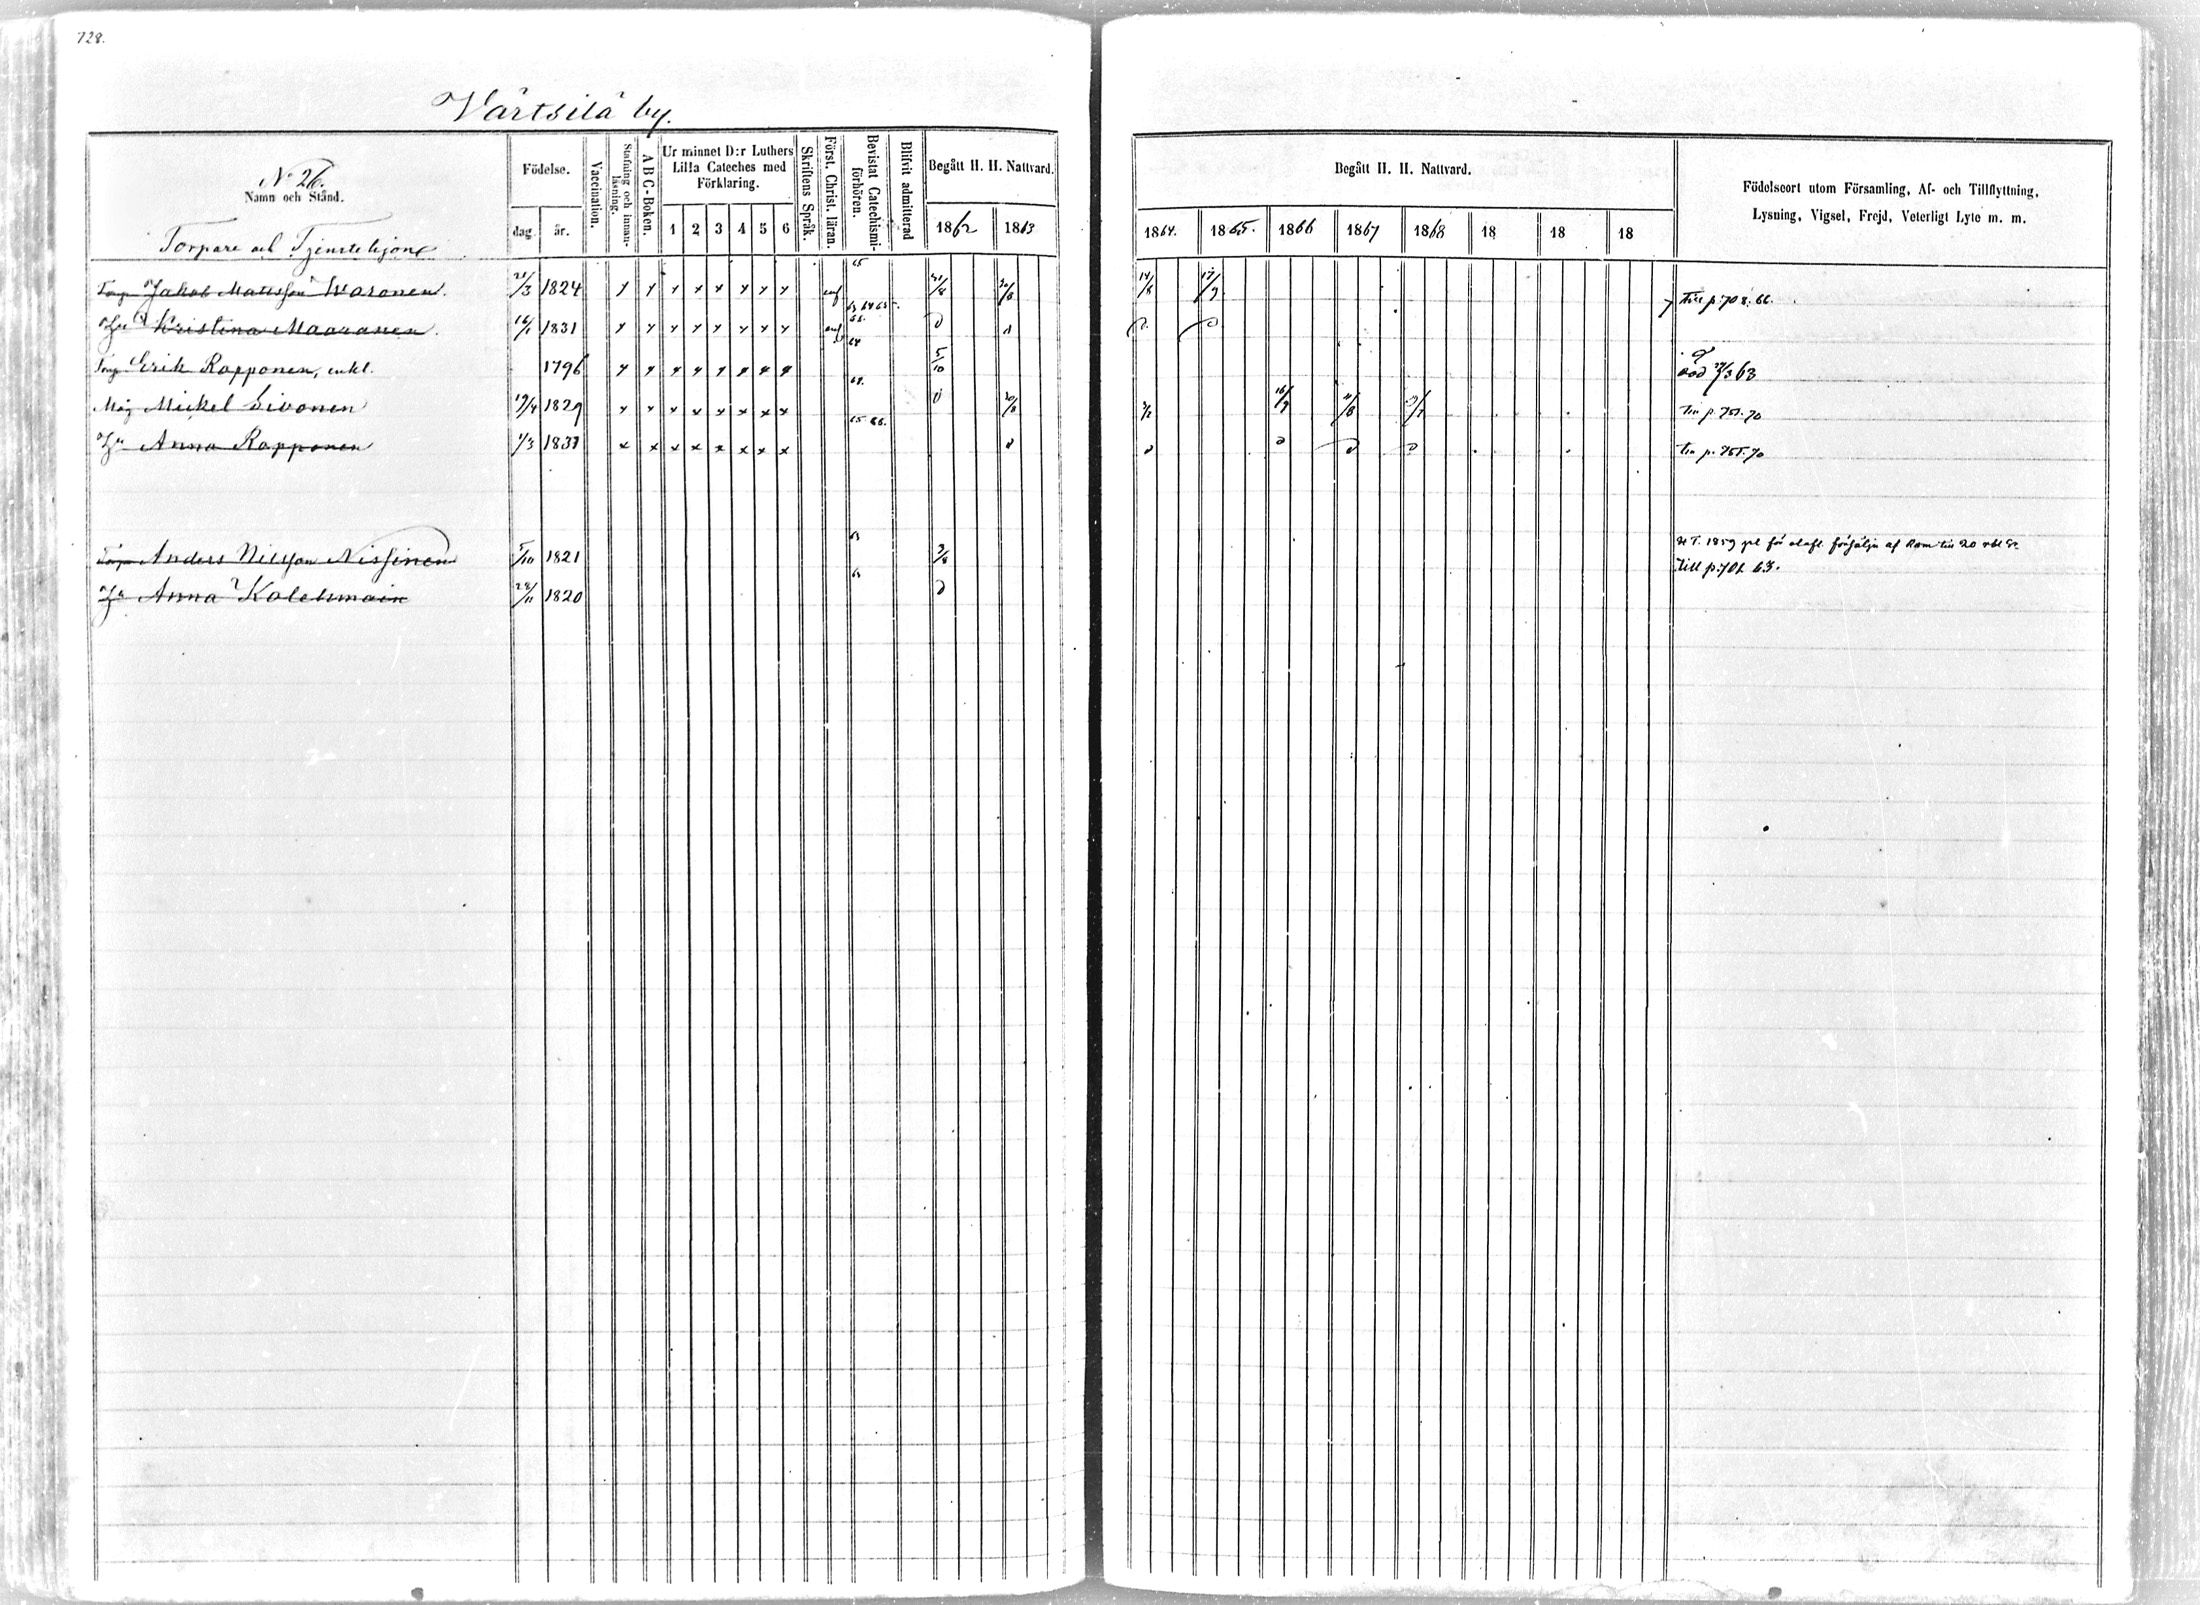 728.
Värtsilä by.
N:o 26.
Namn och Stånd.
Torpare och Tjenstehjon
Födelse.
dag. år.
Vaccination.
Stafning och innanläsning.
ABC-Boken.
Ur minnet D:r Luthers Lilla Cateches med Förklaring.
1 2 3 4 5 6
Skriftens Språk.
Först. Christ. läran.
Bevistat Catechismiförhören.
Blifvit admitterad
Begått H. H. Nattvard.
1862 1863
Begått H. H. Nattvard.
1864. 1865. 1866 1867 1868 18 18 18
Födelseort utom Församling, Af- och Tillflyttning, Lysning, Vigsel, Frejd, Veterligt Lyte m. m.
Torp. Jakob Matsson Waronen. 21/3 1824 x x x x x x x x 65 21/8 20/8 14/8 17/9 Till p. 708. 66.
Hu Kristina Maaranen. 16/1 1831 x x x x x x x x 63 64 65 66.
Torp. Erik Rapponen, enkl. 1796 x x x x x x x x 64 5/10 död 27/3 63
Måg Mickel Sivonen 19/4 1829 x x x x x x x x 68. 20/8 16/9 11/8 till p. 751. 70
Hu Anna Rapponen 1/3 1837 x x x x x x x x 65 66. till p. 751. 70
Torp Anders Nilsson Nissinen 5/10 1821 63 3/8 H.T. 1859 pl för olofl. försäljn af Ram till 20 rbl Sr
Till p. 701 63.
Hu Anna Kolehmain 28/11 1820 63